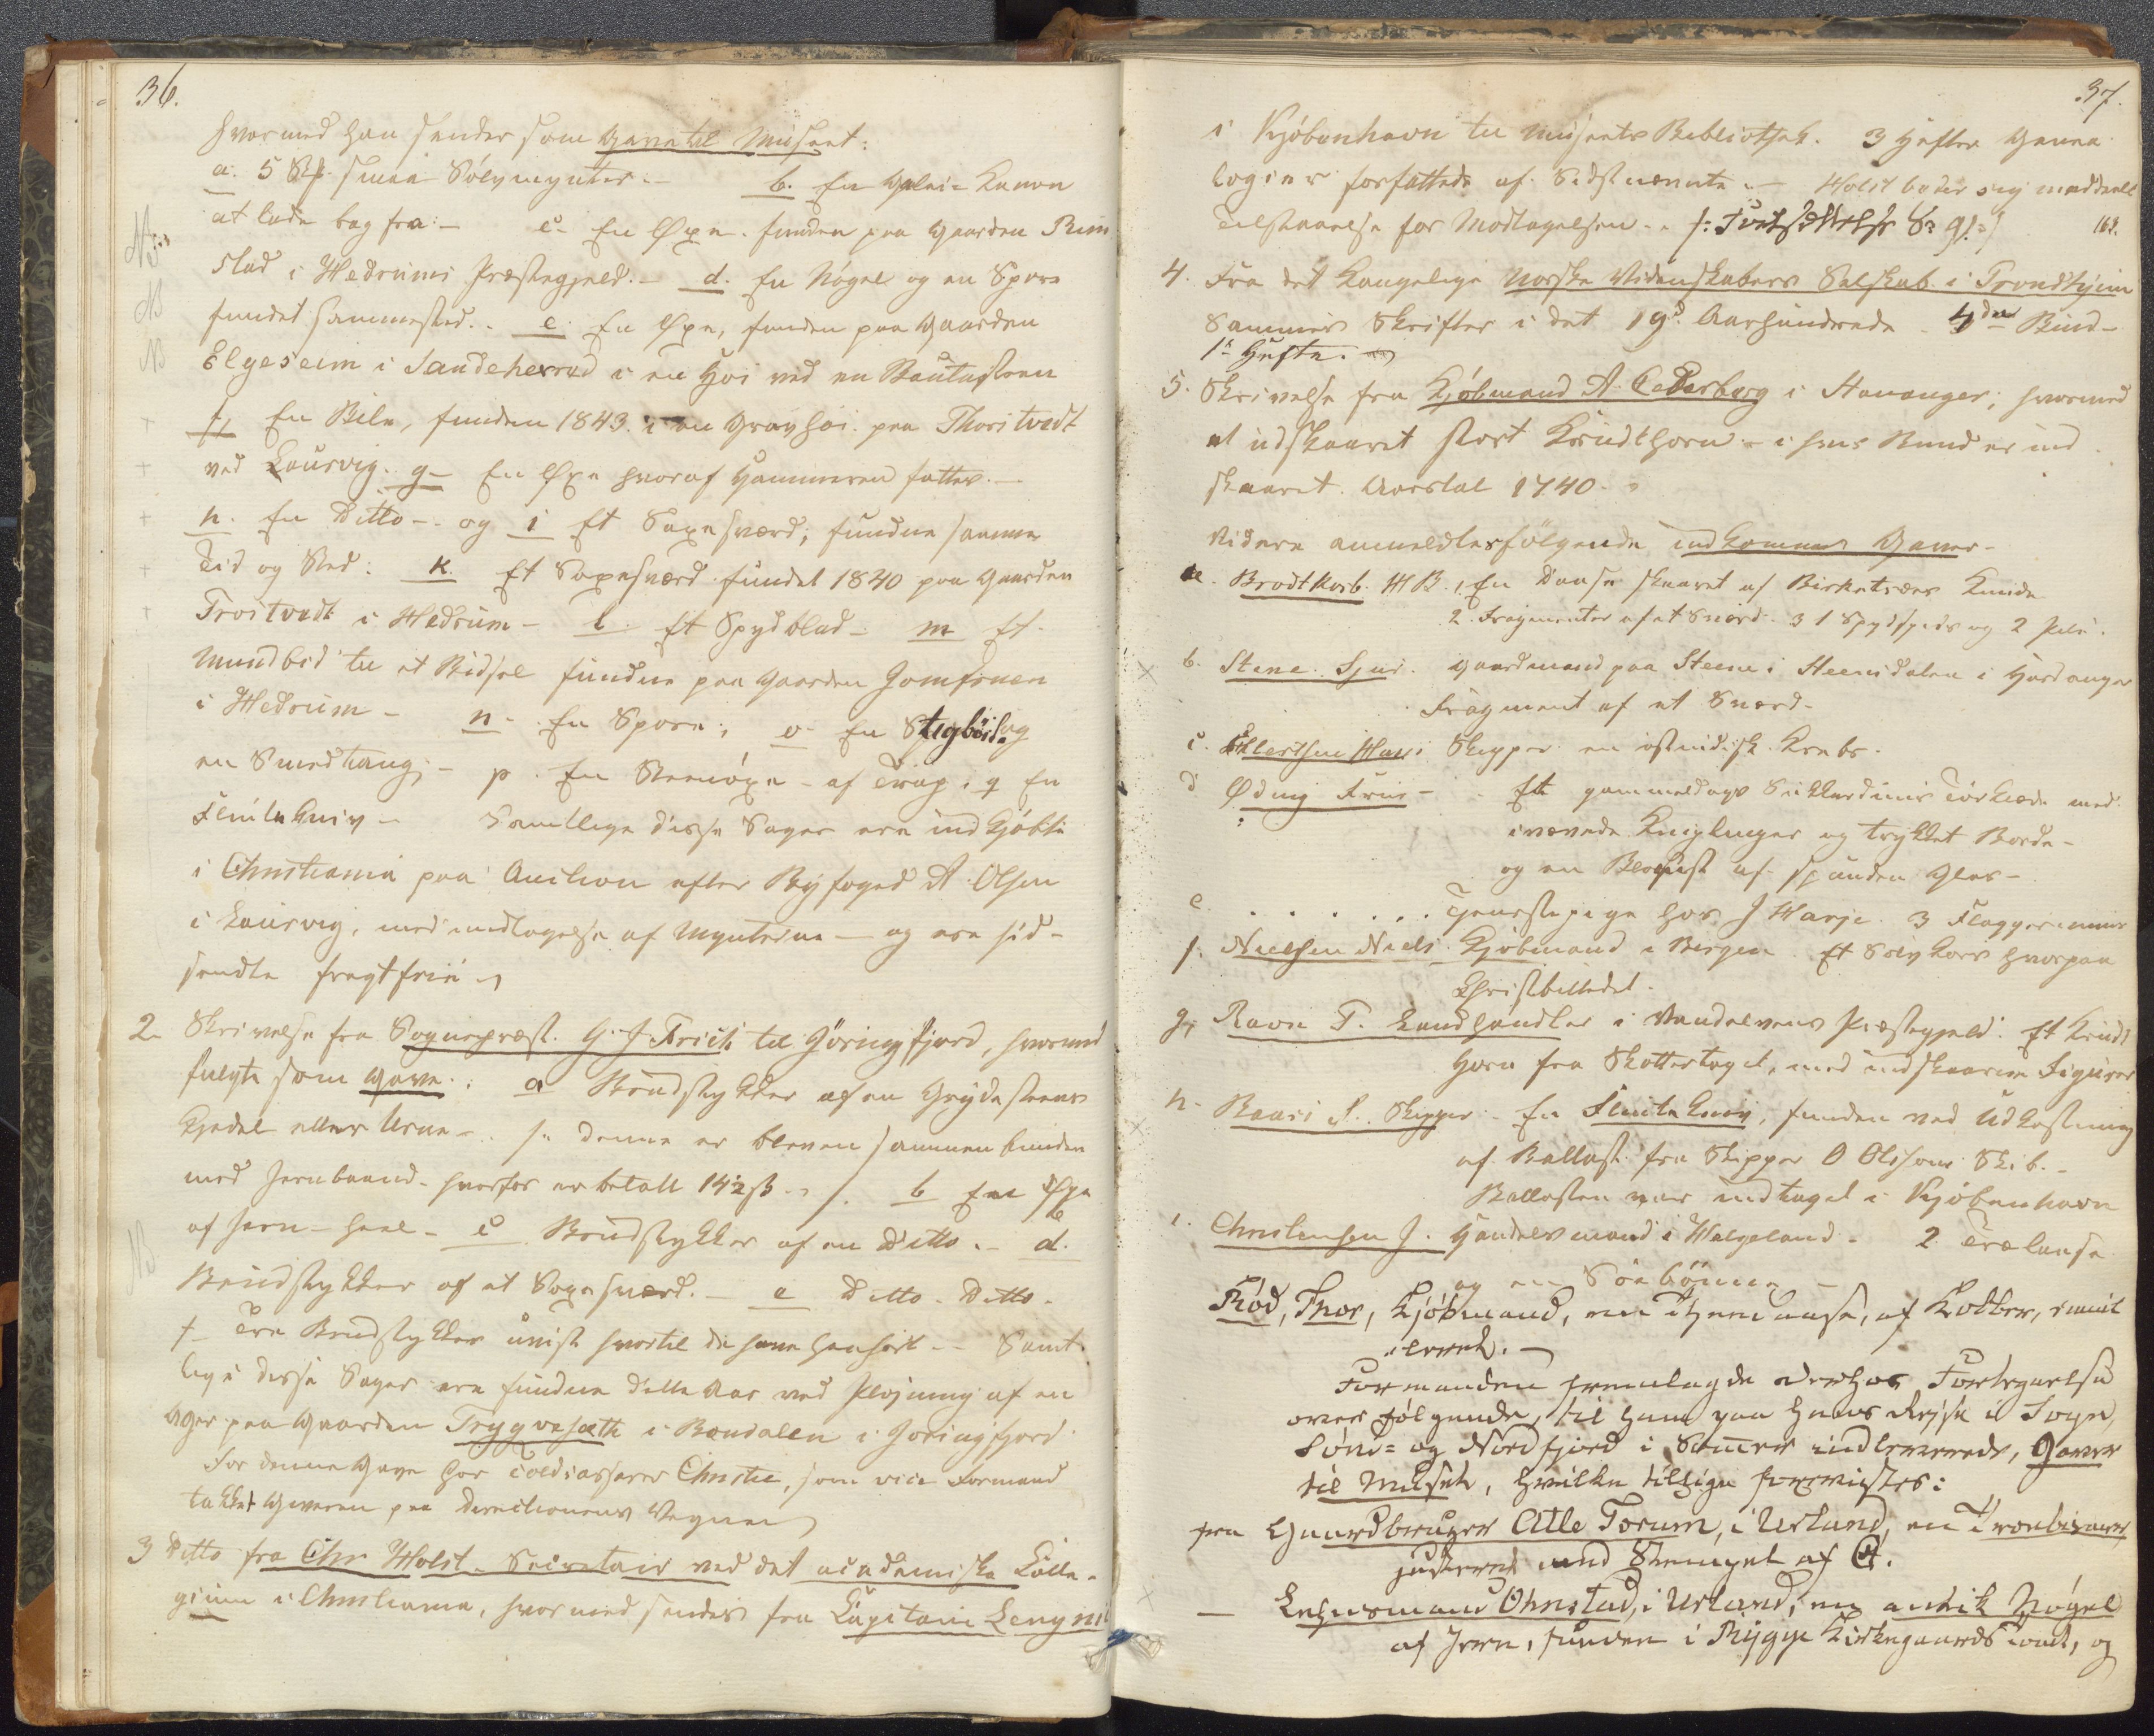 36.
hvormed han sender som Gave til Museet:
a. 5 Stk. smaa Sølvmynter. b. En Glei-Kanon
at lade bag fra. c. En Øxe. funden paa Gaarden Rim
stad i Hedrums Præstegjeld. d. En Nøgel og en Spore
fundet sammested. e. En Øxe, funden paa Gaarden
Elgeseim i Sandeherred i en Høi ved en Bautasteen
f. En Bile, funden 1843 i en Gravhøi paa Thoristvedt
ved Laurvig. g. En Øxe hvoraf Hammeren fattes.
h. En Ditto og i Et Saxesværd; fundne samme
Tid og Sted. k. Et Saxesværd fundet 1840 paa Gaarden
Troitvedt i Hedrum l. Et Spydblad m Et
Mundbid til et Bidsel fundne paa Gaarden Gomfonen
i Hedrum n. En Spore; o. En Stigbøile og
en Smedtang; p. En Steenøxe af Trap; q En
Flintekniv Samtlige disse Sager ere indkjøbte
i Christiania paa Auction efter Byfoged A. Olsen
i Laurvig, med undtagelse af Mynterne og ere hid-
sendte fragtfrie
2 Skrivelse fra Sognepræst G. J. Frich til Jøringfjord, hvormed
fulgte som Gave: a Brudstykker af en Grydesteens
Kjedel eller Urne /: denne er bleven sammenbunden
med Jernbaand hvorfor er betalt 142ß. :/ b En Øxe
af Jern heel c Brudstykker af en Ditto. d.
Brudstykker af et Saxesværd. e Ditto Ditto
f Tre Brudstykker uvist hvortil de have henhørt Samt-
lige disse Sager ere fundne dette Aar ved Pløjning af en
Ager paa Gaarden Trygvesæth i Bondalen i Jøringfjord
For denne Gave har Toldcasserer Christie, som vice Formand
takket Giveren paa Directionens Vegne
3 Ditto fra Chr Holst Secretair ved det academiske Colle-
gium i Christiania, hvormed sendes fra Capitain Lengni
NB
NB
NB
NB
37.
i Kjøbenhavn til Museets Bibliothek. 3 Hefter Genea
logier forfattede af Sidstnævnte. Holst beder sig meddeelt
Tilstaaelse for Modtagelsen. 163.
4. Fra det Kongelige Norske Videnskabers Selskab i Trondhjem
Sammes Skrifter i det 19d Aarhundrede 4det Bind
1t Hefte.
5. Skrivelse fra Kjøbmand A Cederberg i Stavanger; hvormed
et udskaaret stort Krudthorn i hvis Bund er ind
skaaret Aarstal 1740.
Videre anmeldtes følgende indkomne Gaver
a. Brodtkorb. H B. 1, En Daase skaaret af Birketræes Knude
2. Fragmenter af et Sværd. 3 1 Spydspids og 2 Pile.
b. Stene Sjur. Gaardmand paa Steene i Steensdalen i Hardanger
Fragment af et Sværd
c. Ellertsen Hans Skipper en ostindisk Krebs.
d Ødwig Friis Et gammeldags Tørklæde med
ivævede og trykket Borde
og en af spunden Glas
e . . . . . . Tjenestepige hos J Harje. 3 
f. Nielsen Niels Kjøbmand i Bergen Et Sølvkors hvorpaa
Christbilledet.
g, Ravn T. Landhandler i Vandelvens Præstegjeld. Et Krudt
horn fra Skottertoget, med indskaarne Figurer
h. Baars S. Skipper En Flintekniv, funden ved Udkastning
af Ballast fra Skipper O Olsens Skib.
Ballasten var indtaget i Kjøbenhavn
i. Christensen J. Handelsmand i Helgeland. 2 
og en
Rød, Thor, Kjøbmand, en af Kobber,
Formanden fremlagde derhos Fortegnelse
over følgende, til ham paa hans Rejse i Sogn,
Sønd- og Nordfjord i Sommer indleverede, Gaver
til Museet, hvilke tillige forevistes:
fra Gaardbruger Atle Forum, i Urland, en
justeret med Stempel af
— Lehnsmand Ohnstad, i Urland, en antik Nøgel
af Jern, funden i Rygge Kirkegaards Tomt, og